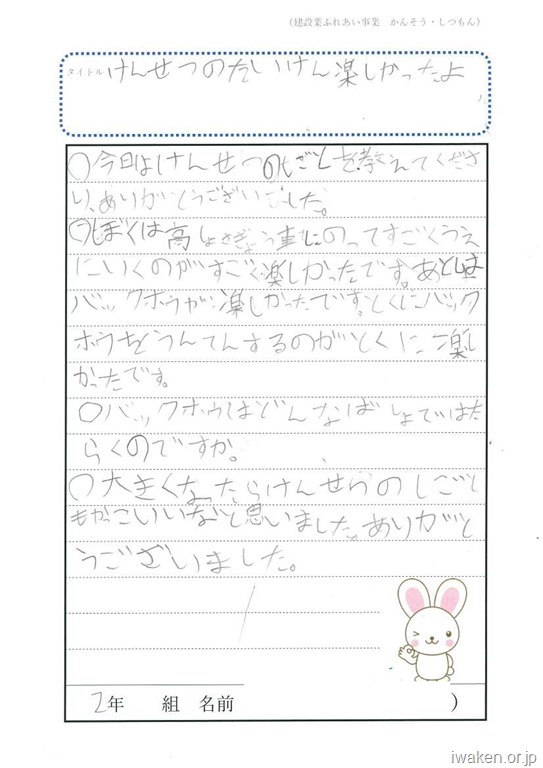 （建設業ふれあい事業　かんそう・しつもん）
タイトル けんせつのたいけん楽しかったよ
○今日はけんせつのしごとを教えてくださ
り、ありがとうございました。
○ぼくは高しょさぎょう車にのってすごくうえ
にいくのがすごく楽しかったです。あとは
バックホウが楽しかったです。とくにバック
ホウをうんてんするのがとくに楽し
かったです。
○バックホウはどんなばしょではた
らくのですか。
○大きくなったらけんせつのしごと
もかっこいいなと思いました。ありがと
うございました。
2年　組　名前　）
iwaken.or.jp